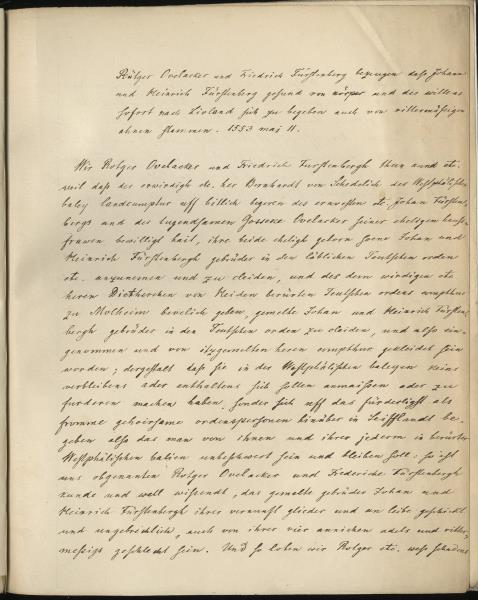 Rütger Ovelacker und Friedrich Fürstenberg bezeugen dass Johann
und Heinrich Fürstenberg gesund von körper und des willens
sofort nach Livland sich zu begeben auch von rittermässigen
ahnen stammen. 1553 maj 11.
Wir Rotger Ovelacker und Friedrich Furstenbergh thun kund etc.
weil dass der erwirdigh etc. her Bernhardt von der Westphälischen
baley landcumptur uff bittlich begeren des ernvesten etc. Johan Fürsten-
bergs und der tugendsamen Ovelacker seiner eheligen haus-
frawen bewilligt hait, ihre beide eheligh geborn soene Johan und
Heinrich Fürstenbergh gebrüder in den löblichen Teutschen orden
etc. anzunemen und zu cleiden, und des dem wirdigen etc.
heren Dietherichen von Heiden berürten Teutschen ordens cumpthur
zu Molheim bevelich geben, gemelte Johan und Heinrich Fürsten-
bergh gebrüder in den Teutschen orden zu cleiden, und also ein-
genommen und von itzgemelten heren cumpthur gecleidet sein
worden; dergestalt dass sie in der Westphälischen baleyen keins
verbleibens oder enthaltens sich sollen anmaissen oder zu
furderen machen haben, sonder sich uff das fürderligst als
fromme gehoirsame ordenspersonen hinüber in Leifflandt be-
geben also das man von ihnen und ihrer jederm in berürter
Westphälischen balien unbeschwert sein und bleiben soll: so ist
uns obgenanten Rotger Ovelacker und Friederichs Fürstenbergh
kunde und woll wissendt, das gemelte gebrüder Johan und
Heinrich Fürstenbergh ihrer vernunft glieder und am leibe geschickt
und ungebrechlich, auch von ihrer vier annichen adels und ritter-
messigs geschlecht sein. Und so loben wir Rotger etc. wess schadens